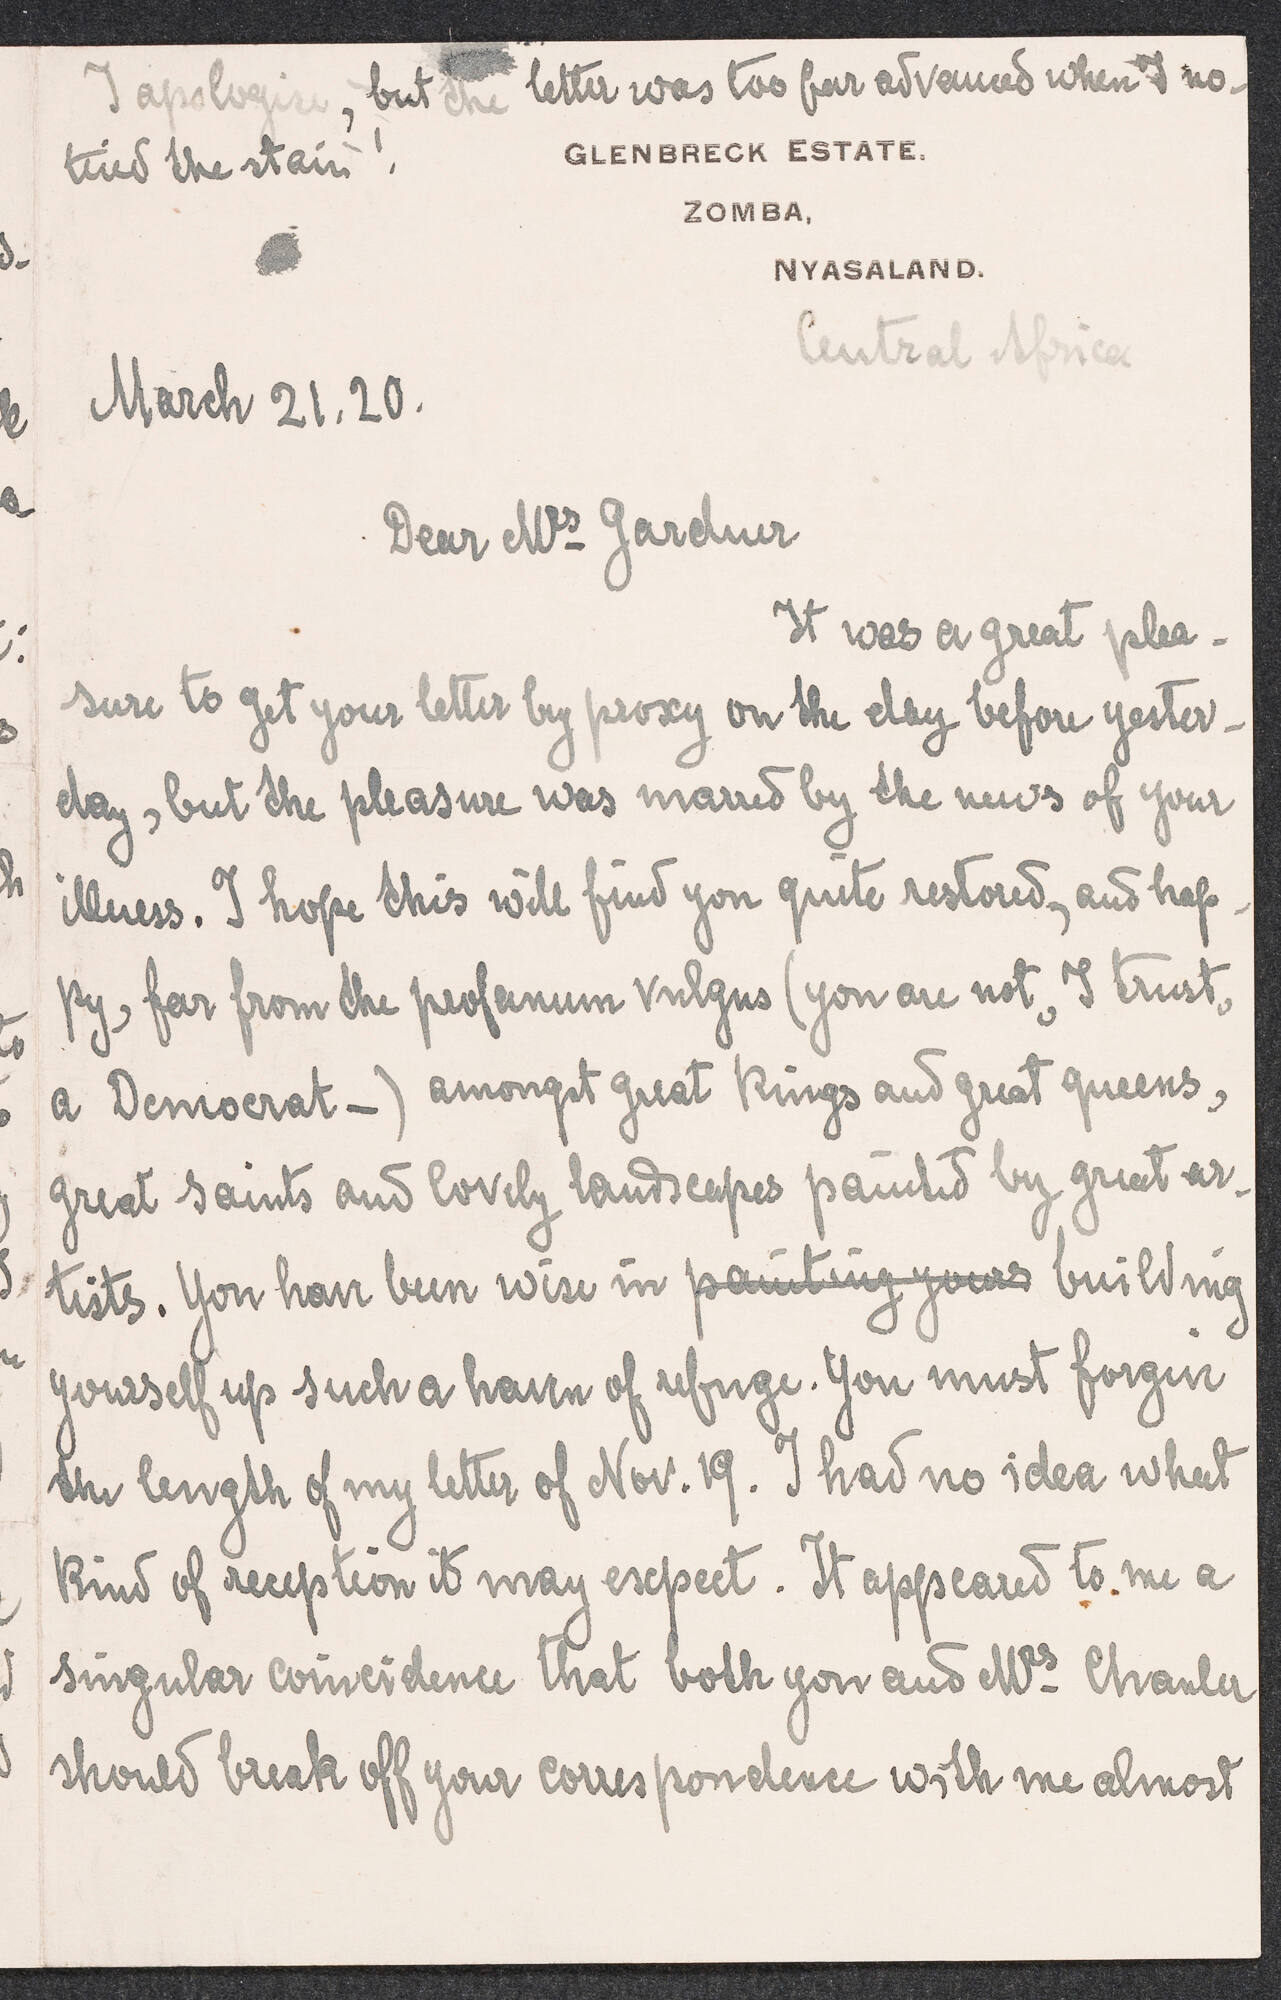 I apologize, but the letter was too far advanced when I no-
ticed the stain!
GLENBRECK ESTATE.
ZOMBA,
NYASALAND.
Central Africa
March 21. 20.
Dear Mrs Gardner
It was a great plea-
sure to get your letter by proxy on the day before yester-
day, but the pleasure was marred by the news of your
illness. I hope this will find you quite restored, and hap-
py, far from the profanum vulgus (you are not, I trust,
a Democrat -) amongst great Kings and great queens,
great saints and lovely landscapes painted by great ar-
tists. You have been wise in painting yours building
yourself up such a haven of refuge. You must forgive
the length of my letter of Nov. 19. I had no idea what
kind of reception it may expect. It appeared to me a
singular coincidence that both you and Mrs Chanler
should break off your correspondence with me almost